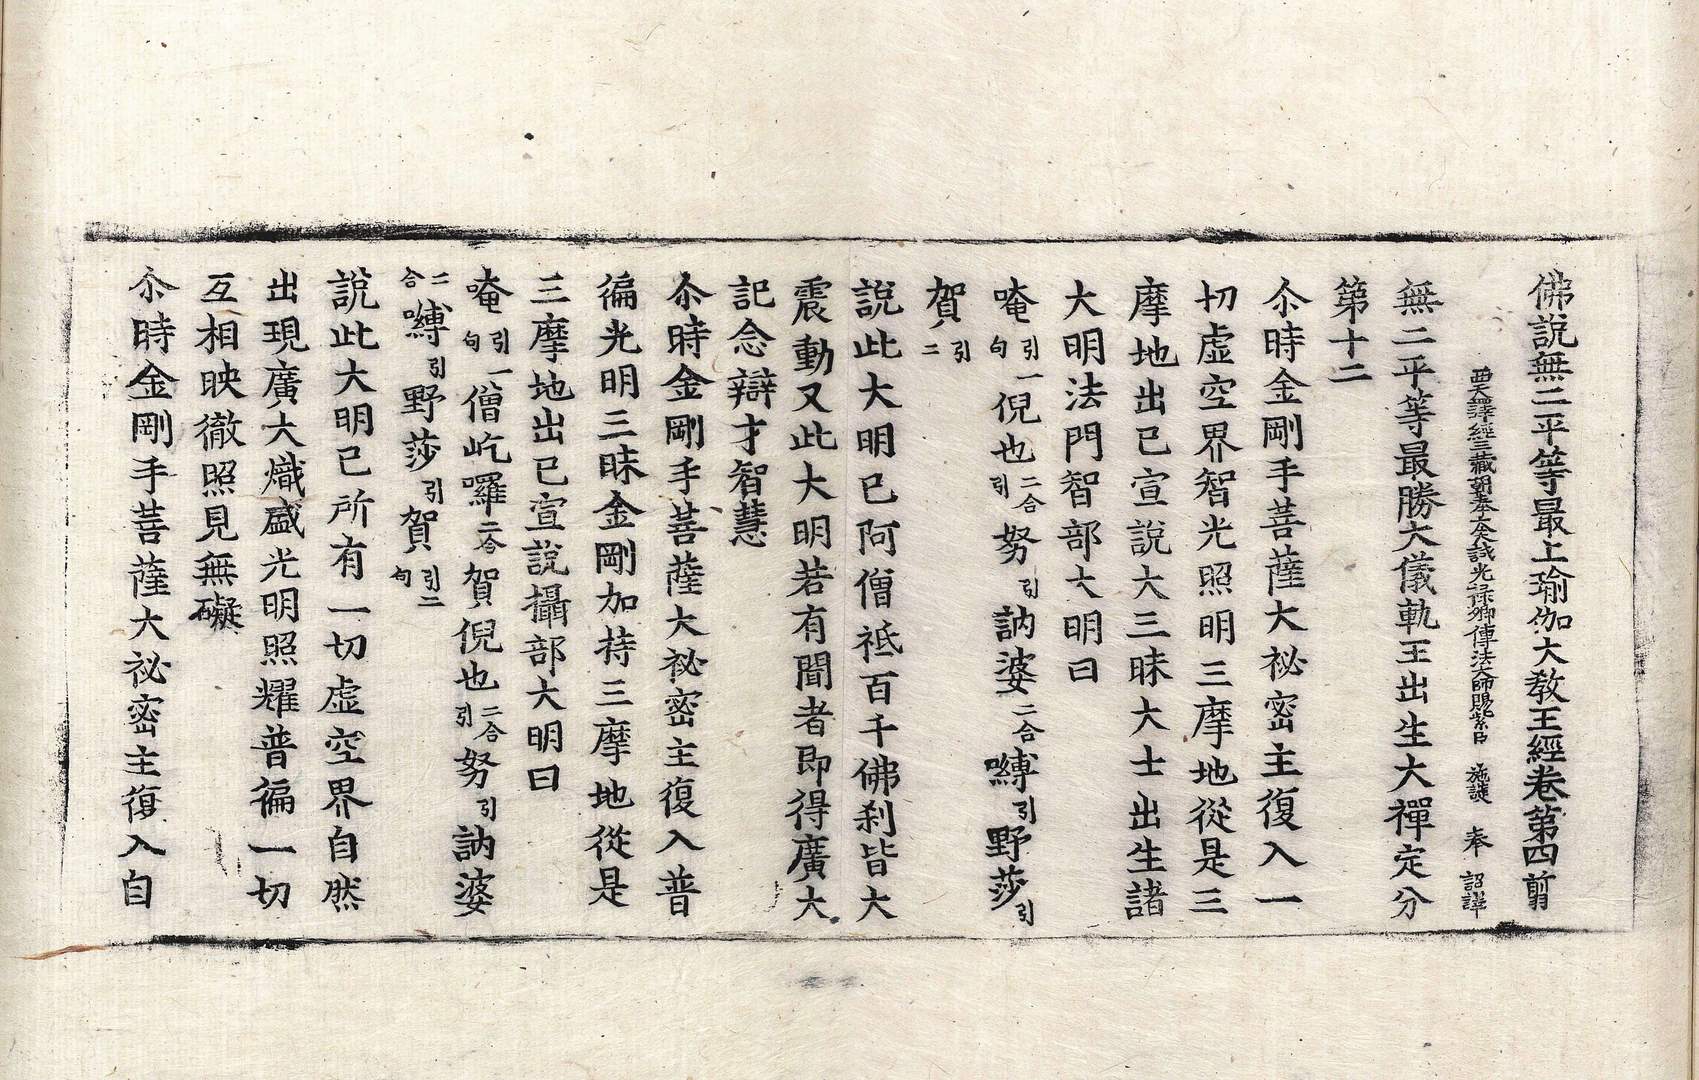 佛說無二平等最上瑜伽大教王經卷第四 剪
西天譯經三藏朝奉大夫試光祿卿傳法大師賜紫臣 施護 奉 詔譯
無二平等最勝大儀軌王出生大禪定分
第十二
尒時金剛手菩薩大祕密主復入一
切虛空界智光照明三摩地從是三
摩地出已宣說大三昧大士出生諸
大明法門智部大明曰
唵引一句倪也二合引努引訥婆二合嚩引野莎引
賀引二
說此大明已阿僧祗百千佛剎皆大
震動又此大明若有聞者即得廣大
記念辯才智慧
尒時金剛手菩薩大祕密主復入普
徧光明三昧金剛加持三摩地從是
三摩地出已宣說攝部大明曰
唵引一句僧屹囉二合賀倪也二合引努引訥婆
二合嚩引野莎引賀引二句
說此大明已所有一切虛空界自然
出現廣大熾盛光明照耀普徧一切
互相映徹照見無礙
尒時金剛手菩薩大祕密主復入自